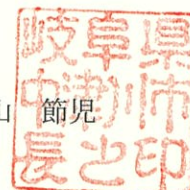 岐阜県
中津川市
長之印
節児